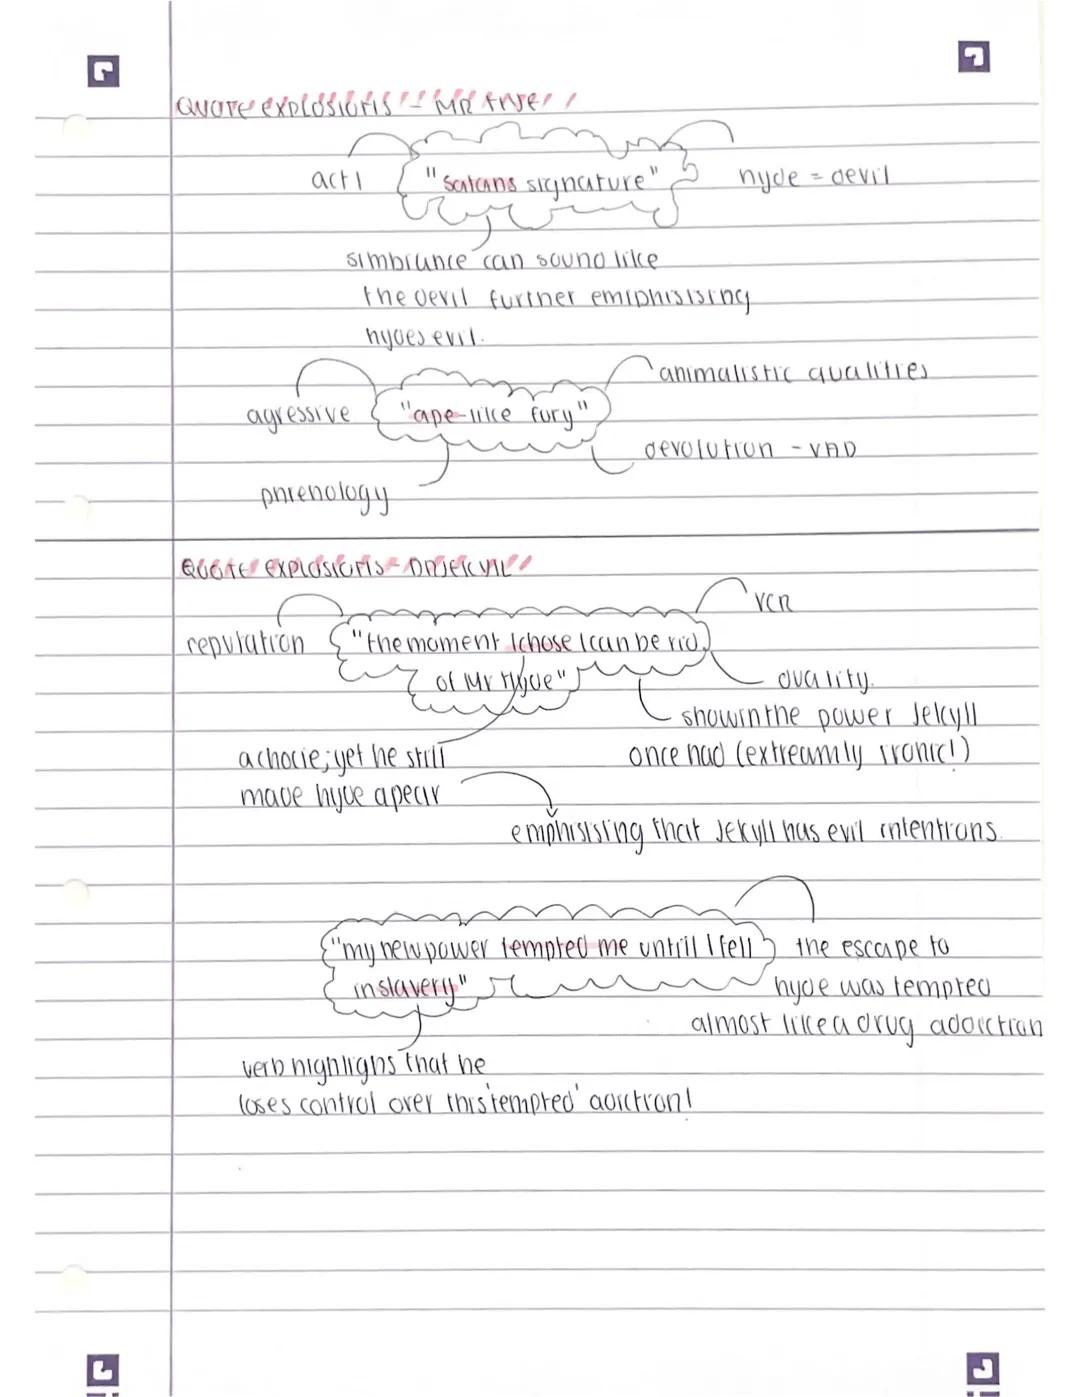 QUOTE EXPLOSIONS - MR HYDE
act 1
"Satans signature"
hyde = devil
simbiance can sound like
the devil further emiphisising
hydes evil.
agressive
"ape-like fury"
animalistic qualities
devolution - VAD
phrenology
QUOTE EXPLOSIONS - DR JEKYLL
reputation
"the moment I chose I can be rid
of Mr Hyde"
VCR
duality.
showin the power Jekyll
once had (extreamly ironic!)
a chocie; yet he still
made hyde apear
emphisising that Jekyll has evil intentions.
"my new power tempted me untill I fell
in slavery"
the escape to
hyde was tempted
almost like a drug addiction
verb highlighs that he
loses control over this 'tempted' adiction!